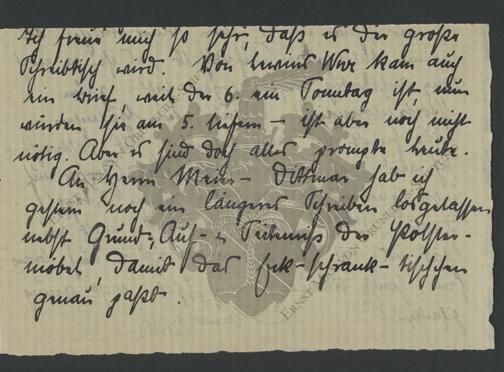 Ich freue mich so sehr, daß es der große
Schreibtisch wird. Von kam auch
ein Brief, weil der 6. ein Sonntag ist, nun
würden sie am 5. liefern – ist aber noch nicht
nötig. Aber es sind doch alles prompte Leute.
An Herrn Meier-Dittmar hab ich
gestern noch ein längeres Schreiben losgelassen
nebst Grund-, Auf- u. Seitenriss der Polster-
möbel, damit das Eck-schrank-tischchen
genau paßt.
ERNST